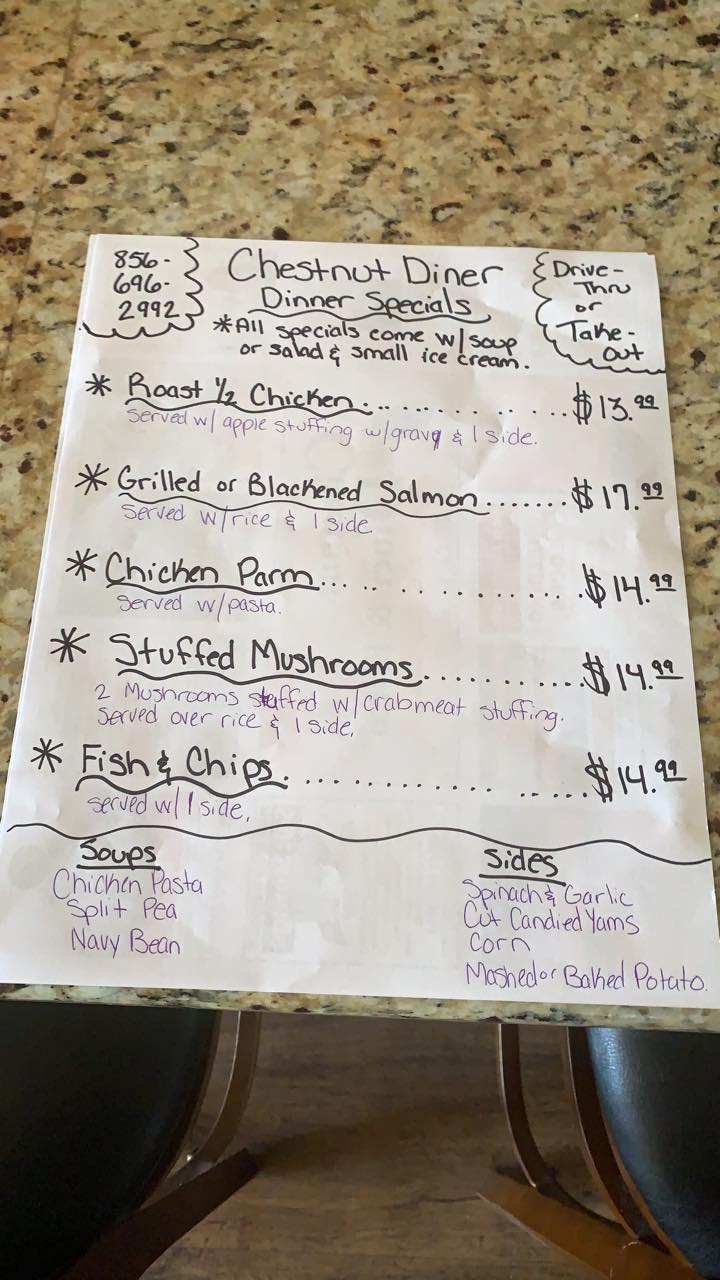 856-
696-
2992
Chestnut Diner
Dinner Specials
*All specials come w/soup
or salad & small ice cream.
Drive-
Thru
or
Take-
Out
* Roast 1/2 Chicken.............$13.99
Served w/ apple stuffing w/gravy & 1 side.
* Grilled or Blackened Salmon.......$17.99
Served w/rice & 1 side
* Chicken Parm................$14.99
Served w/pasta.
* Stuffed Mushrooms............$14.99
2 Mushrooms stuffed w/crabmeat stuffing.
Served over rice & 1 side.
* Fish & Chips..................$14.99
served w/ 1 side.
Soups
Chicken Pasta
Split Pea
Navy Bean
Sides
Spinach & Garlic
Cut Candied Yams
Corn
Mashed or Baked Potato.